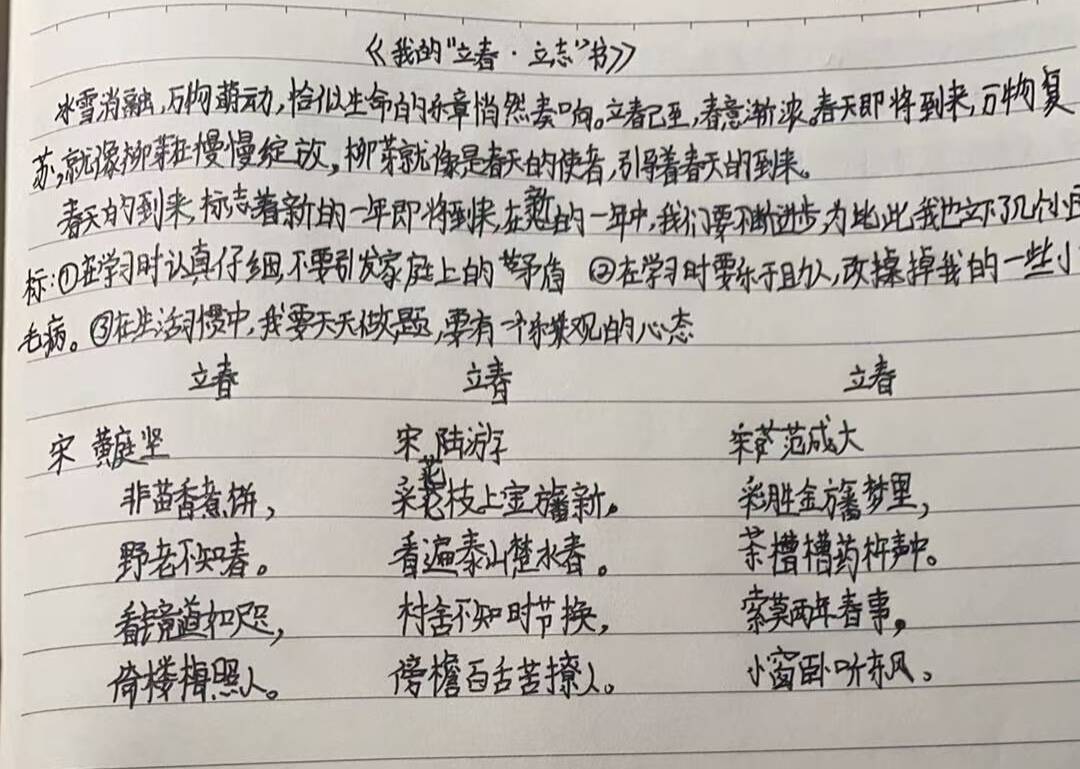 《我的“立春·立志”书》
冰雪消融,万物萌动,恰似生命的乐章悄然奏响。立春已至,春意渐浓。春天即将到来,万物复
苏,就像柳芽在慢慢绽放,柳芽就像是春天的使者,引导着春天的到来。
春天的到来,标志着新的一年即将到来,在新的一年中,我们要不断进步,为此,此我也立下了几个小目
标:①在学习时认真仔细,不要引发家庭上的矛盾 ②在学习时要乐于助人,改掉我的一些小
毛病。③在生活习惯中,我要天天做题,要有一个乐观的心态
立春 立春 立春
宋 黄庭坚 宋 陆游 宋 范成大
韭苗香煮饼, 采花枝上宝旛新。 彩胜金旛梦里,
野老不知春。 看遍秦山楚水春。 茶槽药杵声中。
看镜道如咫, 村舍不知时节换, 索莫两年春事,
倚楼梅照人。 傍檐百舌苦撩人。 小窗卧听东风。